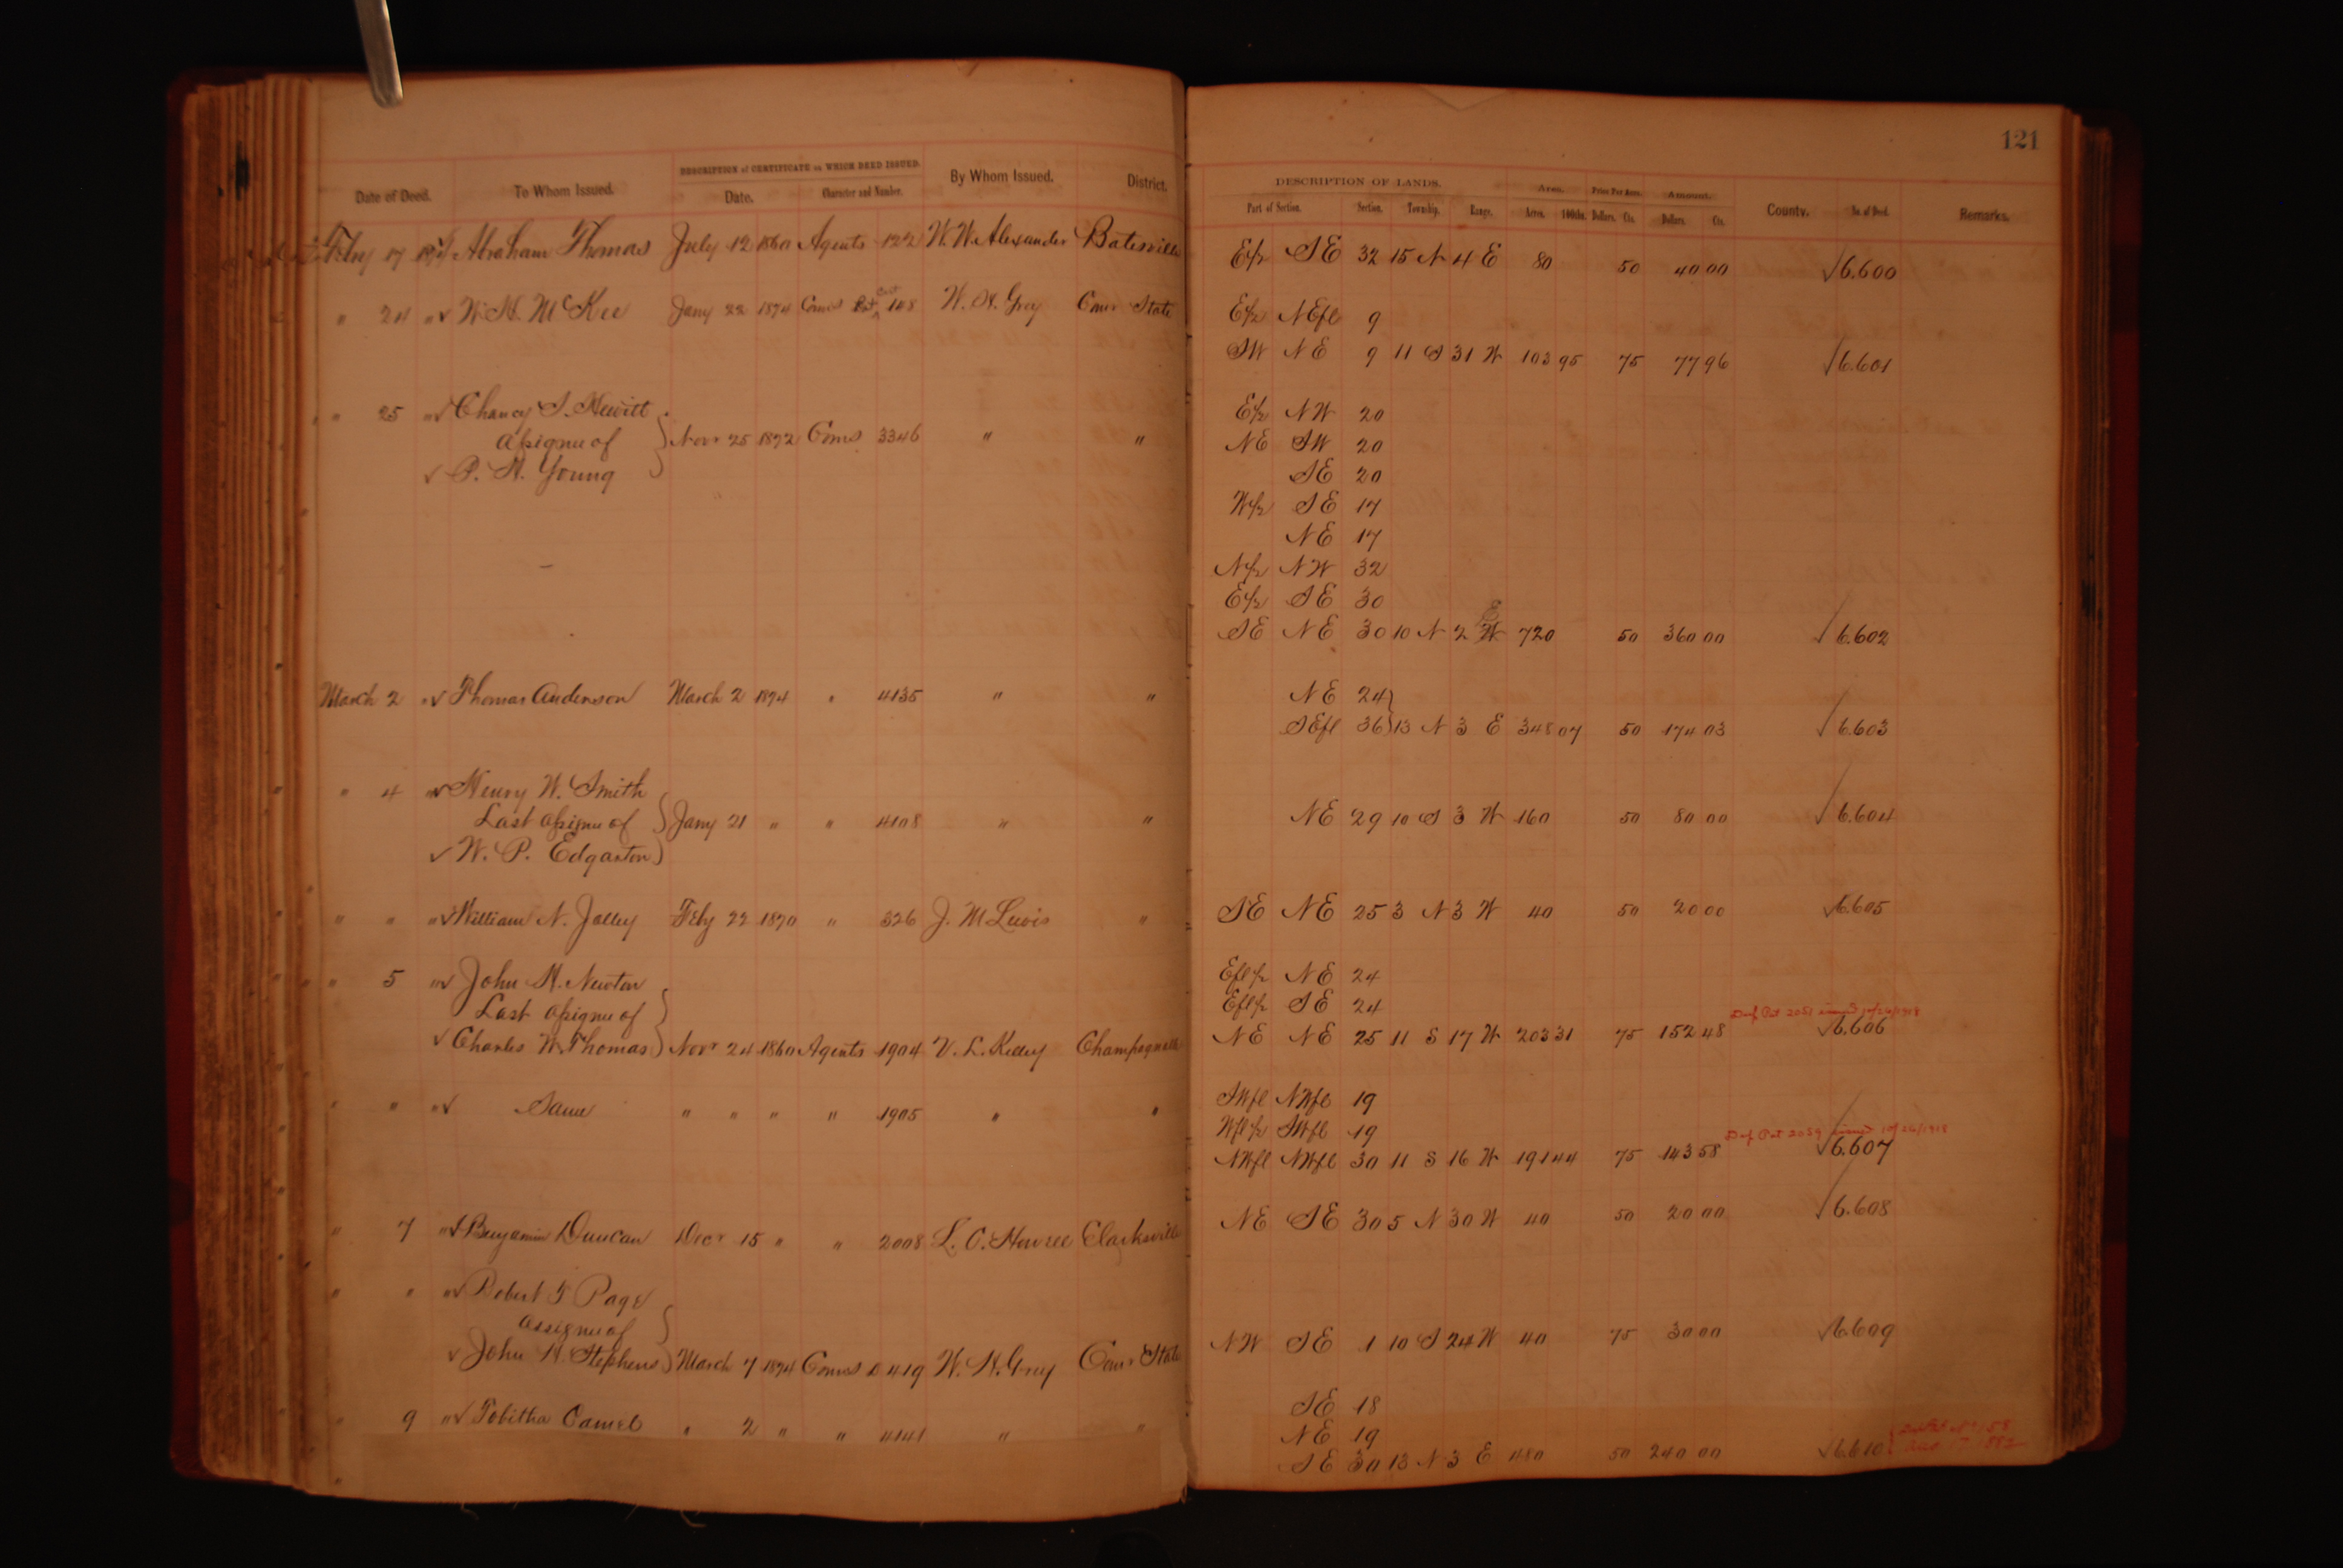 121
DESCRIPTION of CERTIFICATE on WHICH DEED ISSUED.
Date of Deed. To Whom Issued. Date. Character and Number. By Whom Issued. District.
DESCRIPTION OF LANDS. Area. Price Per Acre. Amount.
Part of Section. Section. Township. Range. Acres. 100ths. Dollars. Cts. Dollars. Cts. County. No. of Deed. Remarks.
Feby 17 Abraham Thomas July 12 1860 Agents 122 W. W. Alexander Batesville E½ SE 32 15 N 4 E 80 50 40 00 √6.600
" 24 " √ W. H. McKee Jany 22 1874 Coms 108 W. H. Grey Comr State E½ NEfl 9
SW NE 9 11 S 31 W 103 95 75 77 96 √6.601
" 25 " √ Chancy S. Hewitt E½ NW 20
assignee of } Novr 25 1872 Coms 3346 " " NE SW 20
√ P. H. Young SE 20
W½ SE 17
NE 17
N½ NW 32
E½ SE 30
E
SE NE 30 10 N 2 W 720 50 360 00 √6.602
March 2 " √ Thomas Anderson March 2 1874 " 4135 " " NE 24 }
SEfl 36 } 13 N 3 E 348 07 50 174 03 √6.603
" 4 " √ Henry W. Smith
Last assignee of } Jany 21 " " 4108 " " NE 29 10 S 3 W 160 50 80 00 √6.604
√ W. P. Edgarton
" " " √ William N. Jolley Feby 22 1870 " 326 J. M Lewis " SE NE 25 3 N 3 W 40 50 20 00 √6.605
" 5 " √ John H. Newton Efl½ NE 24
Last assignee of Efl½ SE 24
Def Pat 2051 issued 10/26/1918
√ Charles W. Thomas } Novr 24 1860 Agents 1904 V. L. Kelley Champagnolle NE NE 25 11 S 17 W 203 31 75 152 48 √6.606
" " " √ Same " " " " 1905 " " SWfl NWfl 19
Wfl½ SWfl 19
Def Pat 2059 issued 10/26/1918
NWfl NWfl 30 11 S 16 W 191 44 75 143 58 √6.607
" 7 " √ Benjamin Duncan Decr 15 " " 2008 L. C. Howsee Clarksville NE SE 30 5 N 30 W 40 50 20 00 √6.608
" " " √ Robert T Page
assignee of
√ John H. Stephens } March 7 1874 Coms D 419 W. H. Grey Comr State NW SE 1 10 S 24 W 40 75 30 00 √6.609
" 9 " √ Tobitha Camel " 2 " " 4141 " " SE 18
NE 19
SE 30 13 N 3 E 480 50 240 00 √6.610